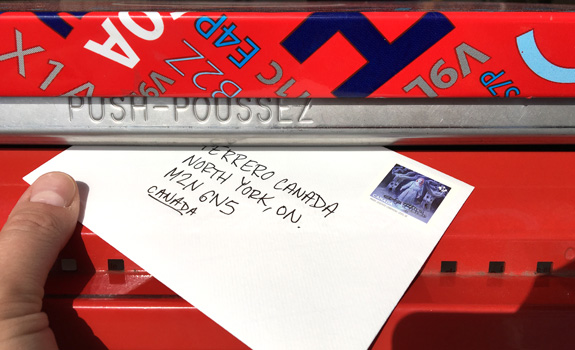 X1V
V9
0A
B2Z
E4P
J1C
H
V9L
S7P
C
PUSH-POUSSEZ
FERRERO CANADA
NORTH YORK, ON.
M2N 6N5
CANADA